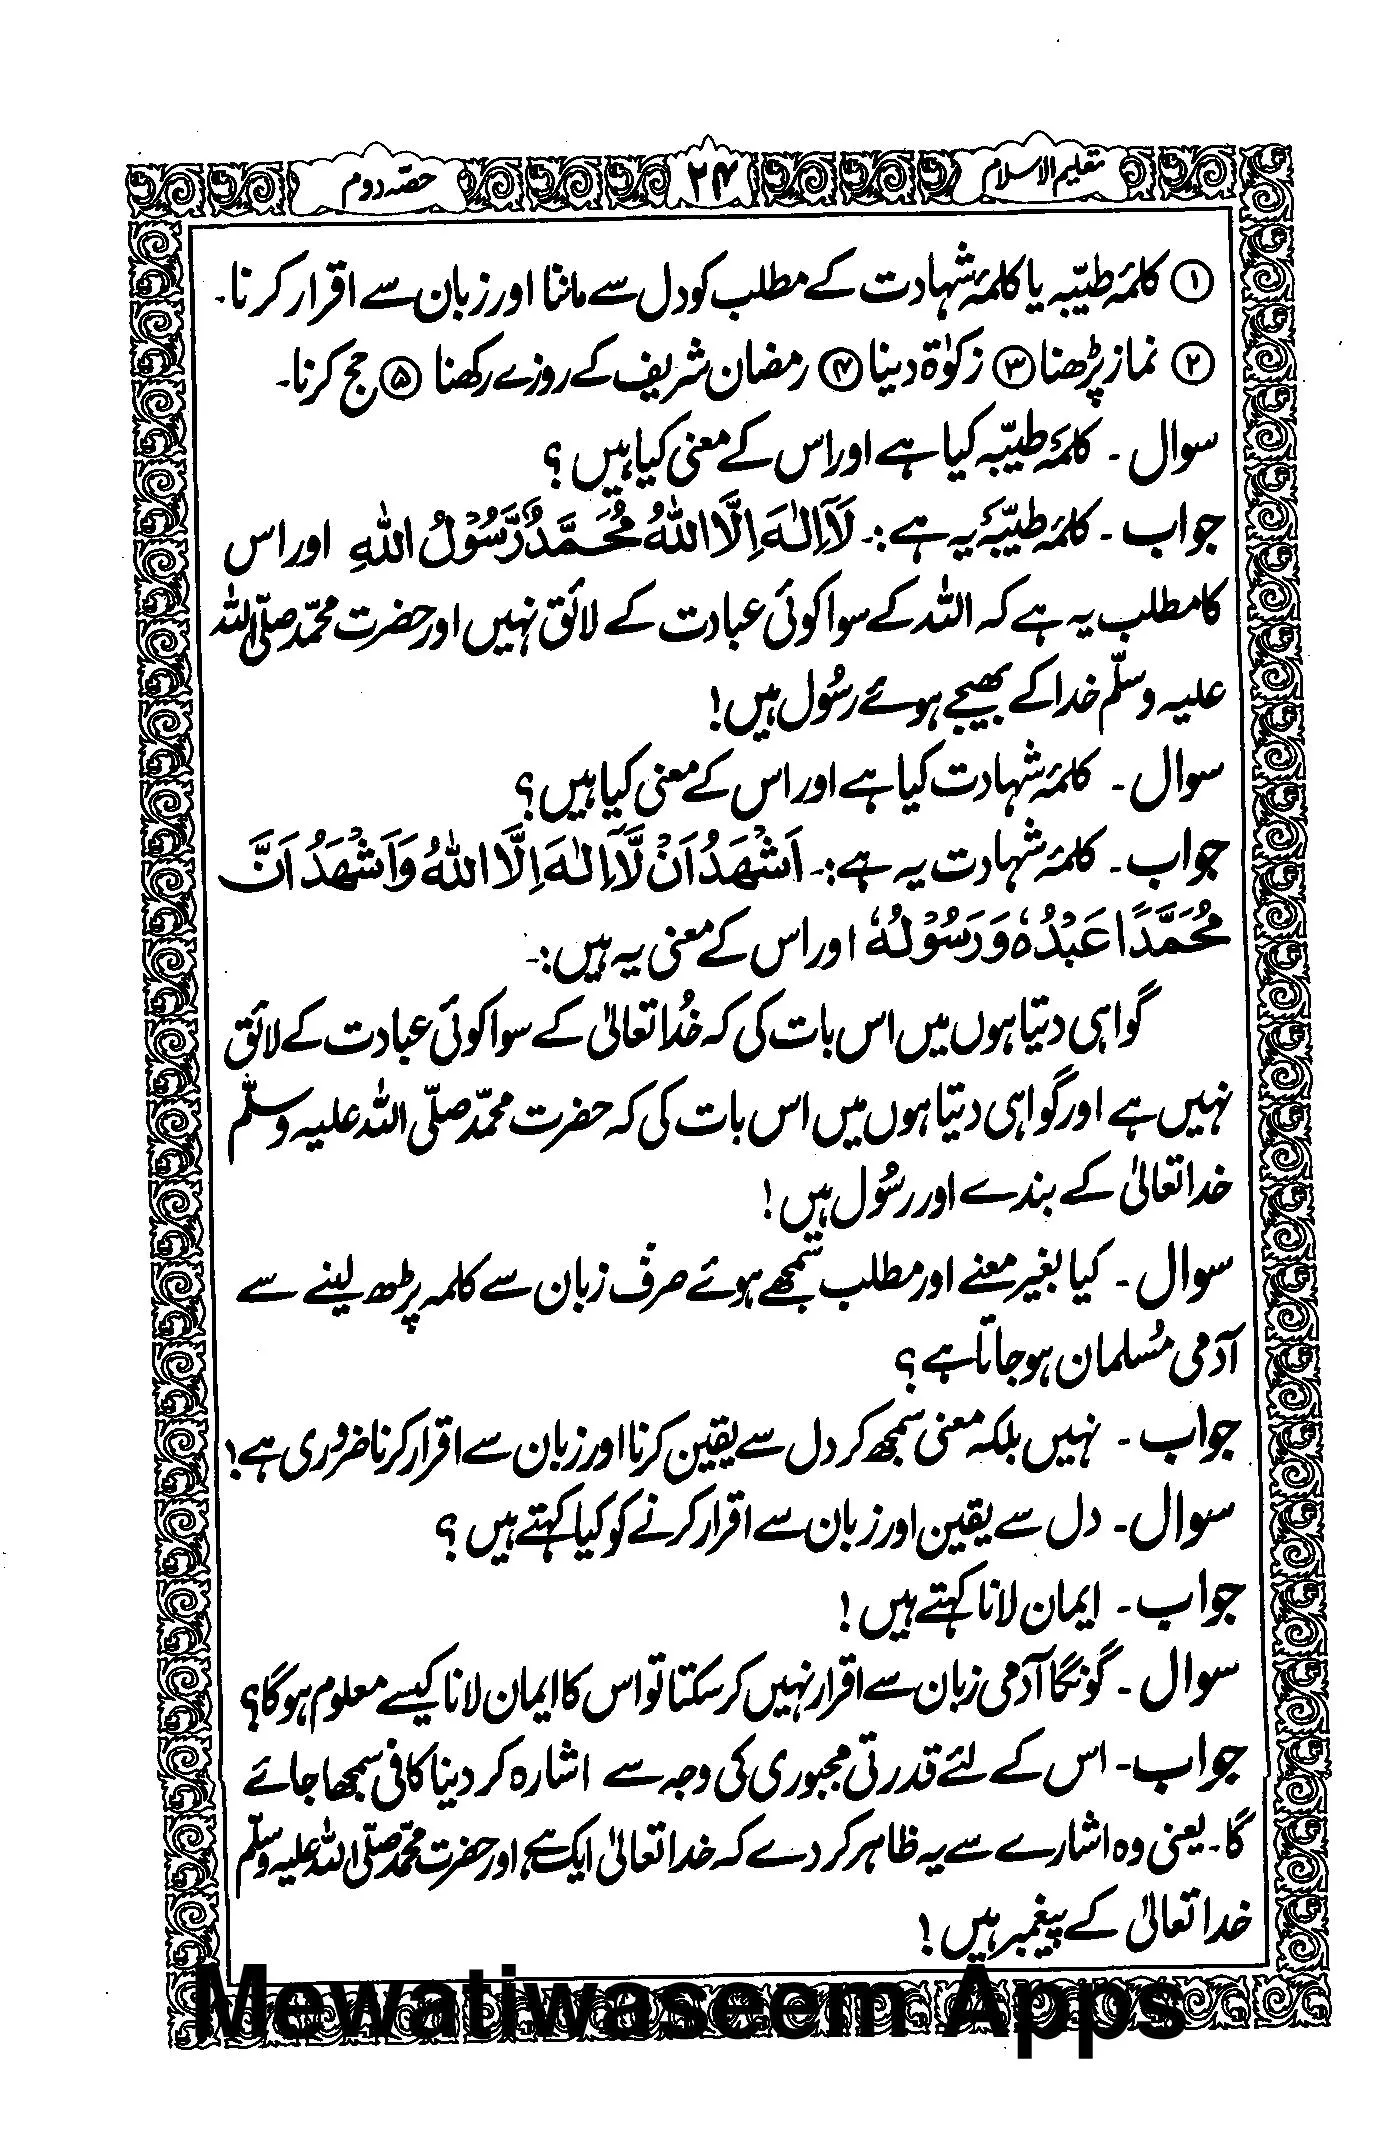 تعلیم الاسلام
۲۴
حصّہ دوم
① کلمۂ طیّبہ یا کلمۂ شہادت کے مطلب کو دل سے ماننا اور زبان سے اقرار کرنا۔
② نماز پڑھنا ③ زکوٰۃ دینا ④ رمضان شریف کے روزے رکھنا ⑤ حج کرنا۔
سوال ۔ کلمۂ طیّبہ کیا ہے اور اس کے معنی کیا ہیں ؟
جواب ۔ کلمۂ طیّبہ یہ ہے :۔ لَآ اِلٰهَ اِلَّا اللّٰهُ مُحَمَّدٌ رَّسُوْلُ اللّٰهِ اور اس
کا مطلب یہ ہے کہ اللہ کے سوا کوئی عبادت کے لائق نہیں اور حضرت محمّد صلّی اللہ
علیہ وسلّم خدا کے بھیجے ہوئے رسُول ہیں!
سوال ۔ کلمۂ شہادت کیا ہے اور اس کے معنی کیا ہیں؟
جواب ۔ کلمۂ شہادت یہ ہے :۔ اَشْهَدُ اَنْ لَّآ اِلٰهَ اِلَّا اللّٰهُ وَاَشْهَدُ اَنَّ
مُحَمَّدًا عَبْدُهٗ وَرَسُوْلُهٗ اور اس کے معنی یہ ہیں :۔
گواہی دیتا ہوں میں اس بات کی کہ خُدا تعالیٰ کے سوا کوئی عبادت کے لائق
نہیں ہے اور گواہی دیتا ہوں میں اس بات کی کہ حضرت محمّد صلّی اللہ علیہ وسلّم
خدا تعالیٰ کے بندے اور رسُول ہیں!
سوال ۔ کیا بغیر معنے اور مطلب سمجھے ہوئے صرف زبان سے کلمہ پڑھ لینے سے
آدمی مُسلمان ہو جاتا ہے ؟
جواب ۔ نہیں بلکہ معنی سمجھ کر دل سے یقین کرنا اور زبان سے اقرار کرنا ضروری ہے!
سوال ۔ دل سے یقین اور زبان سے اقرار کرنے کو کیا کہتے ہیں ؟
جواب ۔ ایمان لانا کہتے ہیں!
سوال ۔ گونگا آدمی زبان سے اقرار نہیں کر سکتا تو اس کا ایمان لانا کیسے معلوم ہوگا؟
جواب ۔ اس کے لئے قدرتی مجبوری کی وجہ سے اشارہ کر دینا کافی سمجھا جائے
گا۔ یعنی وہ اشارے سے یہ ظاہر کر دے کہ خدا تعالیٰ ایک ہے اور حضرت محمّد صلّی اللہ علیہ وسلّم
خدا تعالیٰ کے پیغمبر ہیں!
Mewatiwaseem Apps